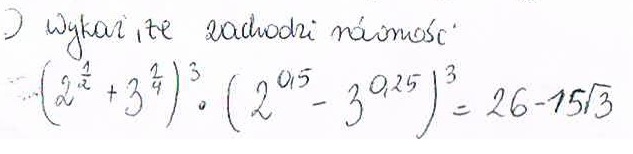 ) Wykaż, że zachodzi równość
(2^{1/2} + 3^{1/4})^3 · (2^{0,5} - 3^{0,25})^3 = 26 - 15√3